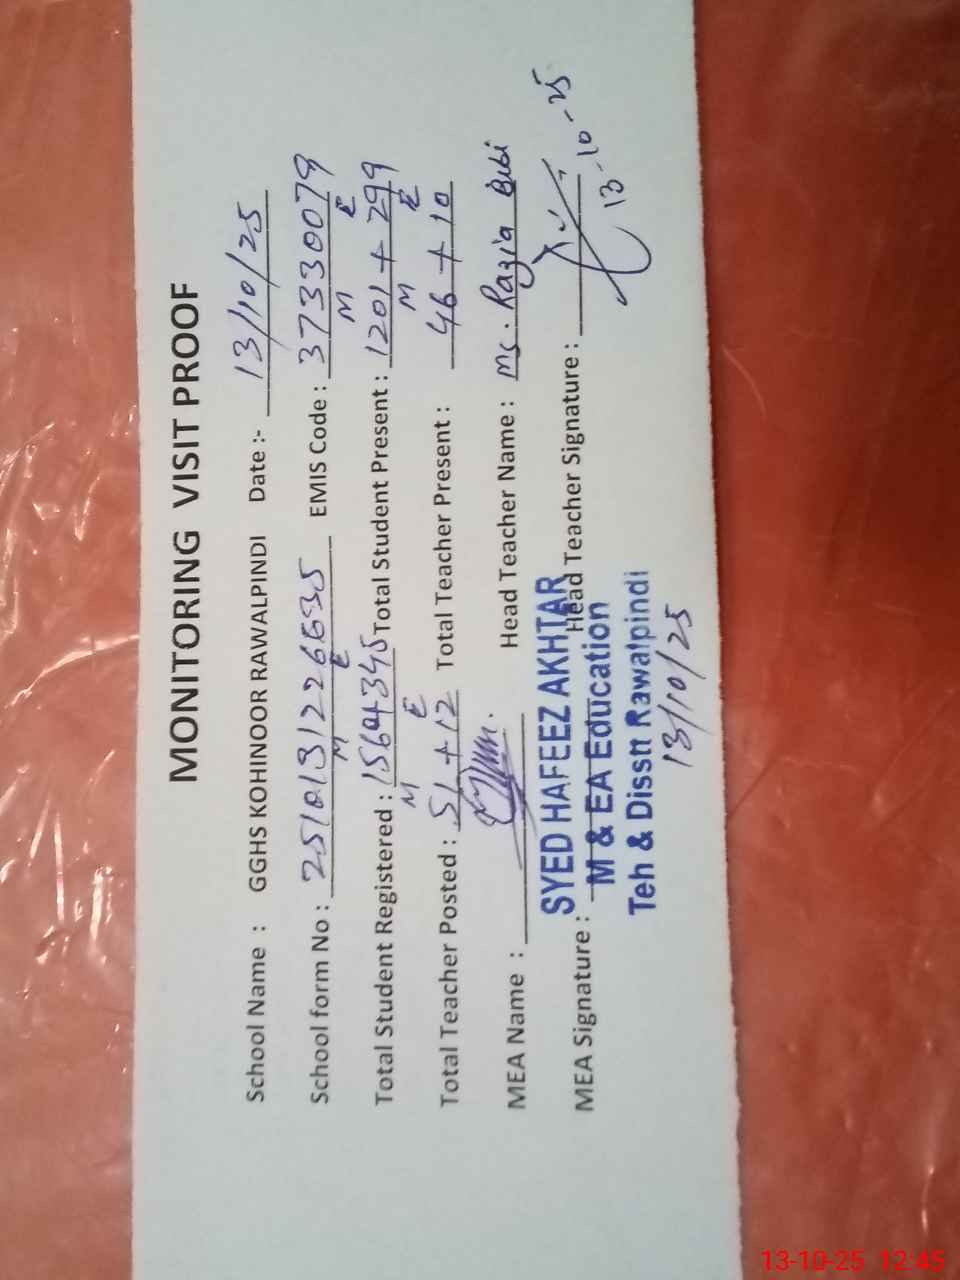 MONITORING VISIT PROOF
School Name : GGHS KOHINOOR RAWALPINDI Date :- 13/10/25
School form No : 2510131226635 EMIS Code : 37330079
M E M E
Total Student Registered : 1564345 Total Student Present : 1201 + 299
M E M E
Total Teacher Posted : 51 + 12 Total Teacher Present : 46 + 10
MEA Name : Head Teacher Name : Ms. Razia Bibi
SYED HAFEEZ AKHTAR
MEA Signature : Head Teacher Signature :
M & EA Education
13-10-25
Teh & Disstt Rawalpindi
13/10/25
13-10-25 12:45